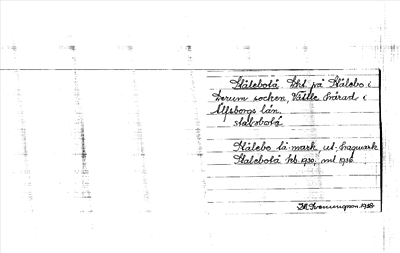 Stålebotå, tht. på Stålebo i
Lerum socken, Vättle härad i
Älfsborgs län.
stålebotå
Stålebo tå mark, ut, hagmark
Stålebotå hs. 1930, mt 1916.
1938